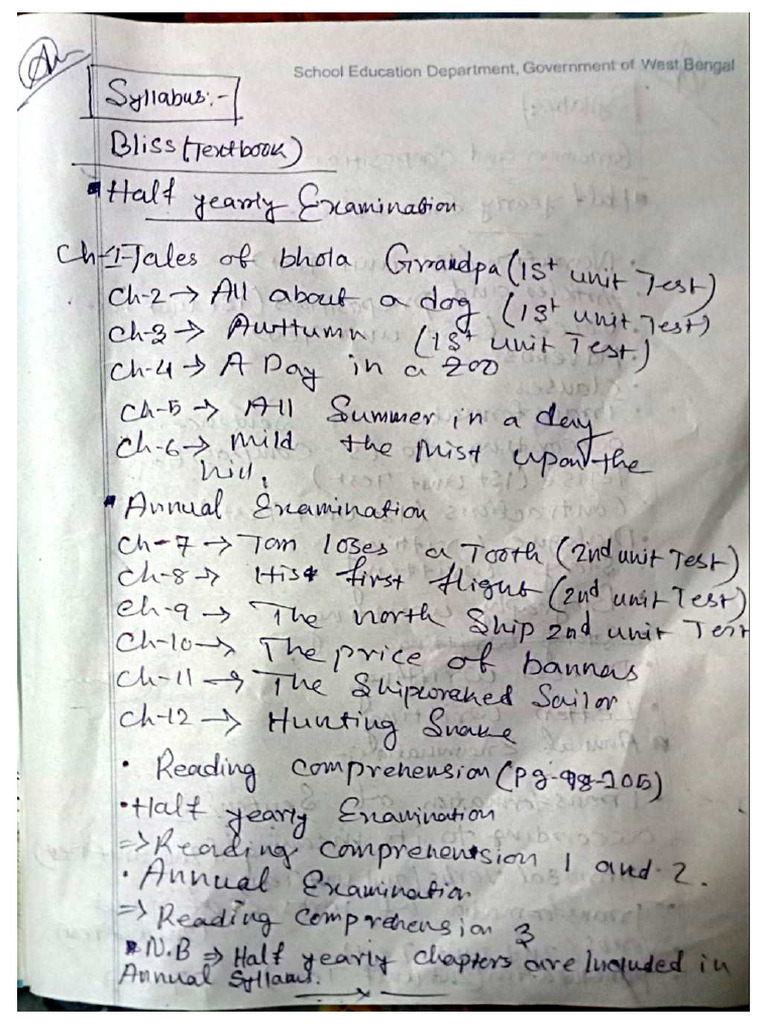 School Education Department, Government of West Bengal
Syllabus:-
Bliss (Textbook)
Half yearly Examination
Ch-1-Tales of bhola Grandpa (1st unit Test)
Ch-2 → All about a dog (1st unit Test)
Ch-3 → Auttumn (1st unit Test.)
Ch-4 → A Day in a zoo
Ch-5 → All Summer in a day
Ch-6 → Mild the Mist upon the
hill.
Annual Examination
Ch-7 → Tom loses a Tooth (2nd unit Test)
Ch-8 → His first flight (2nd unit Test)
Ch-9 → The north Ship 2nd unit Test
Ch-10 → The price of bannas
Ch-11 → The Shipwreked Sailor
Ch-12 → Hunting Snake
• Reading comprehension (Pg-98-105)
• Half yearly Examination
⇒ Reading comprehension 1 and 2.
• Annual Examination
⇒ Reading comprehension 3
N.B ⇒ Half yearly chapters are Included in
Annual Syllabus.